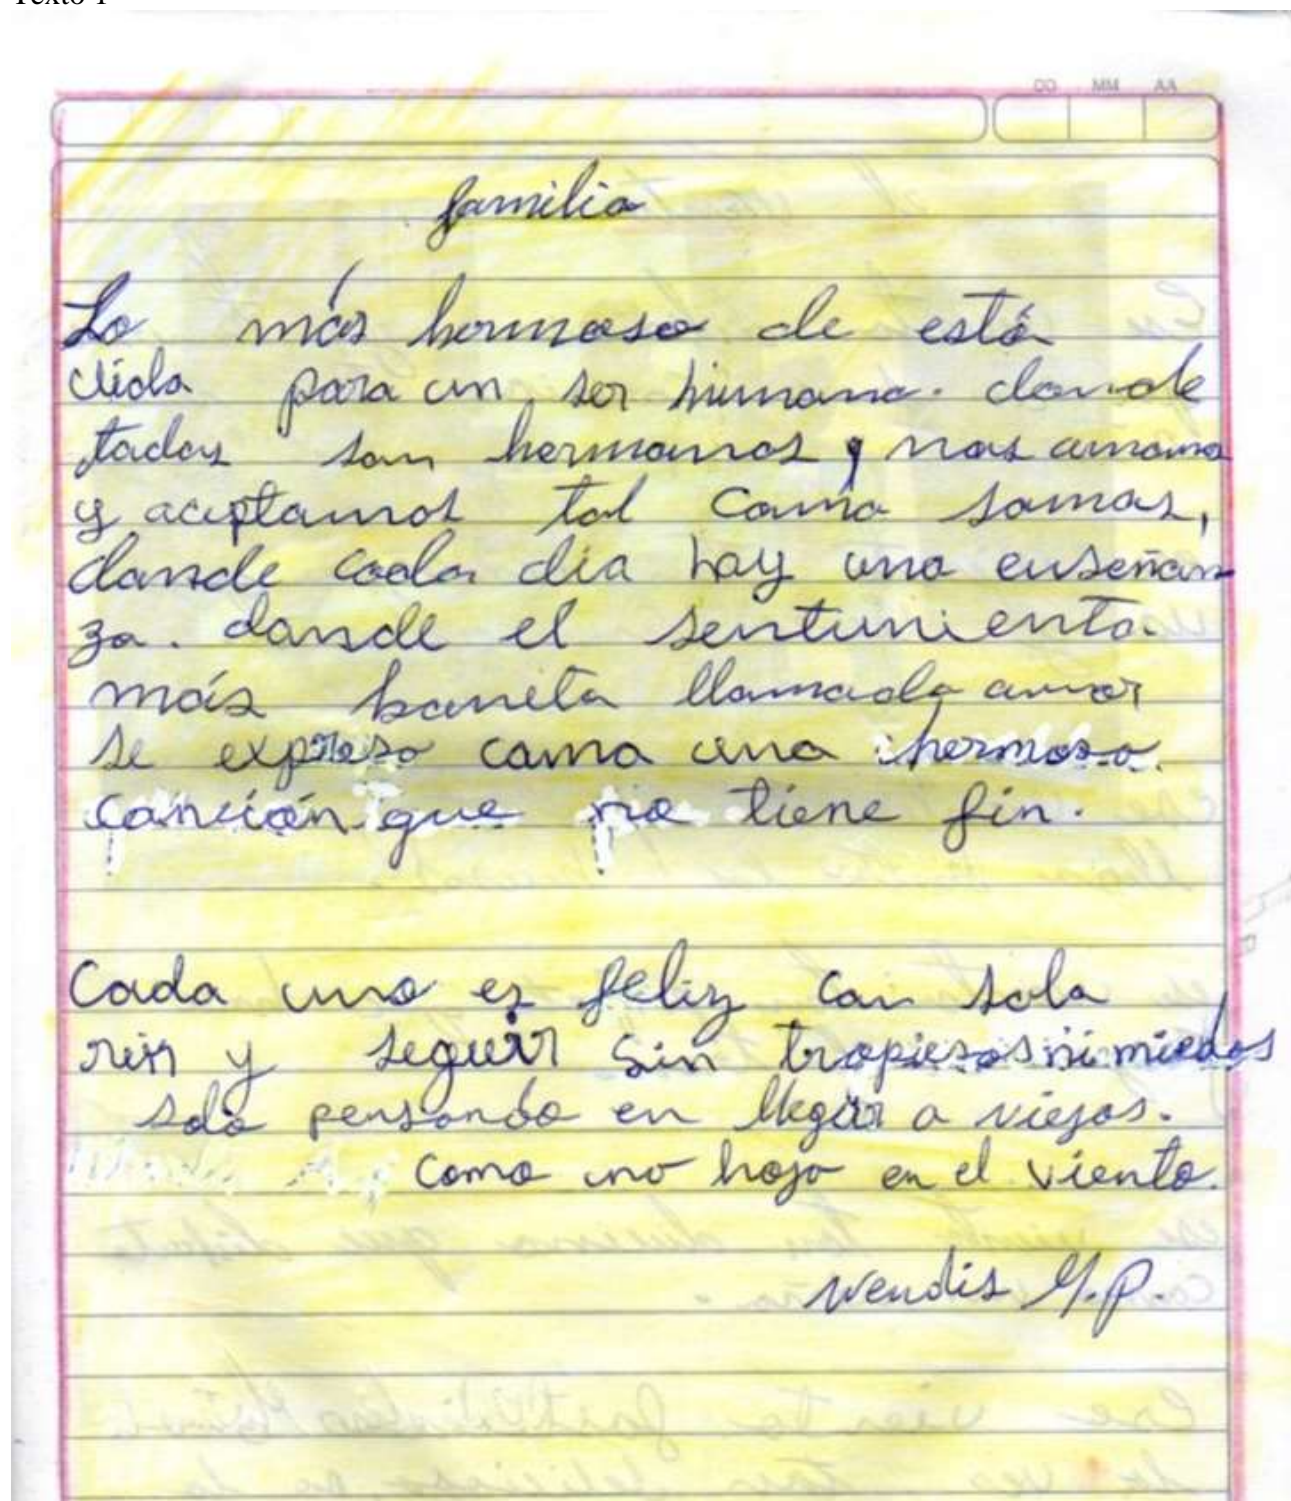 Texto 1
DD MM AA
familia
Lo más hermoso de está
vida para un ser humano. donde
todos son hermanos, nos amamos
y aceptamos tal como somos,
donde cada día hay una enseñan
za. donde el sentimiento
más bonito llamado amor
se expresa como una hermosa
canción que no tiene fin.
Cada uno es feliz con solo
reir y seguir sin tropiesos ni miedos
solo pensando en llegar a viejos.
como una hoja en el viento.
Wendis M.P.